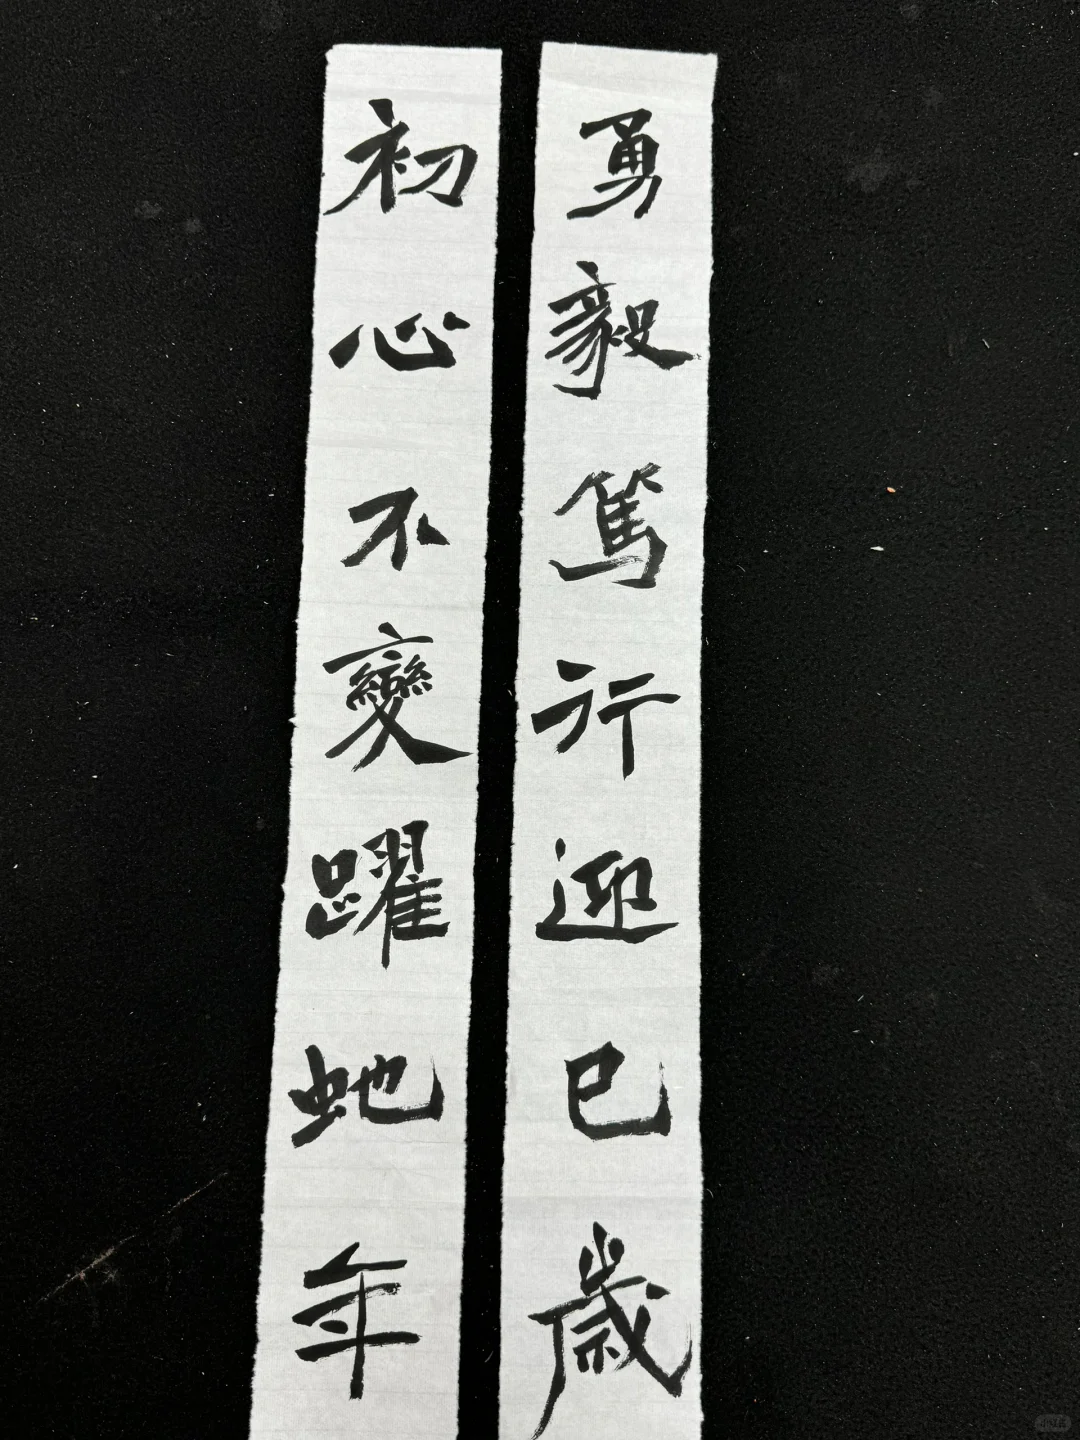 勇毅篤行迎巳歲
初心不變躍虵年